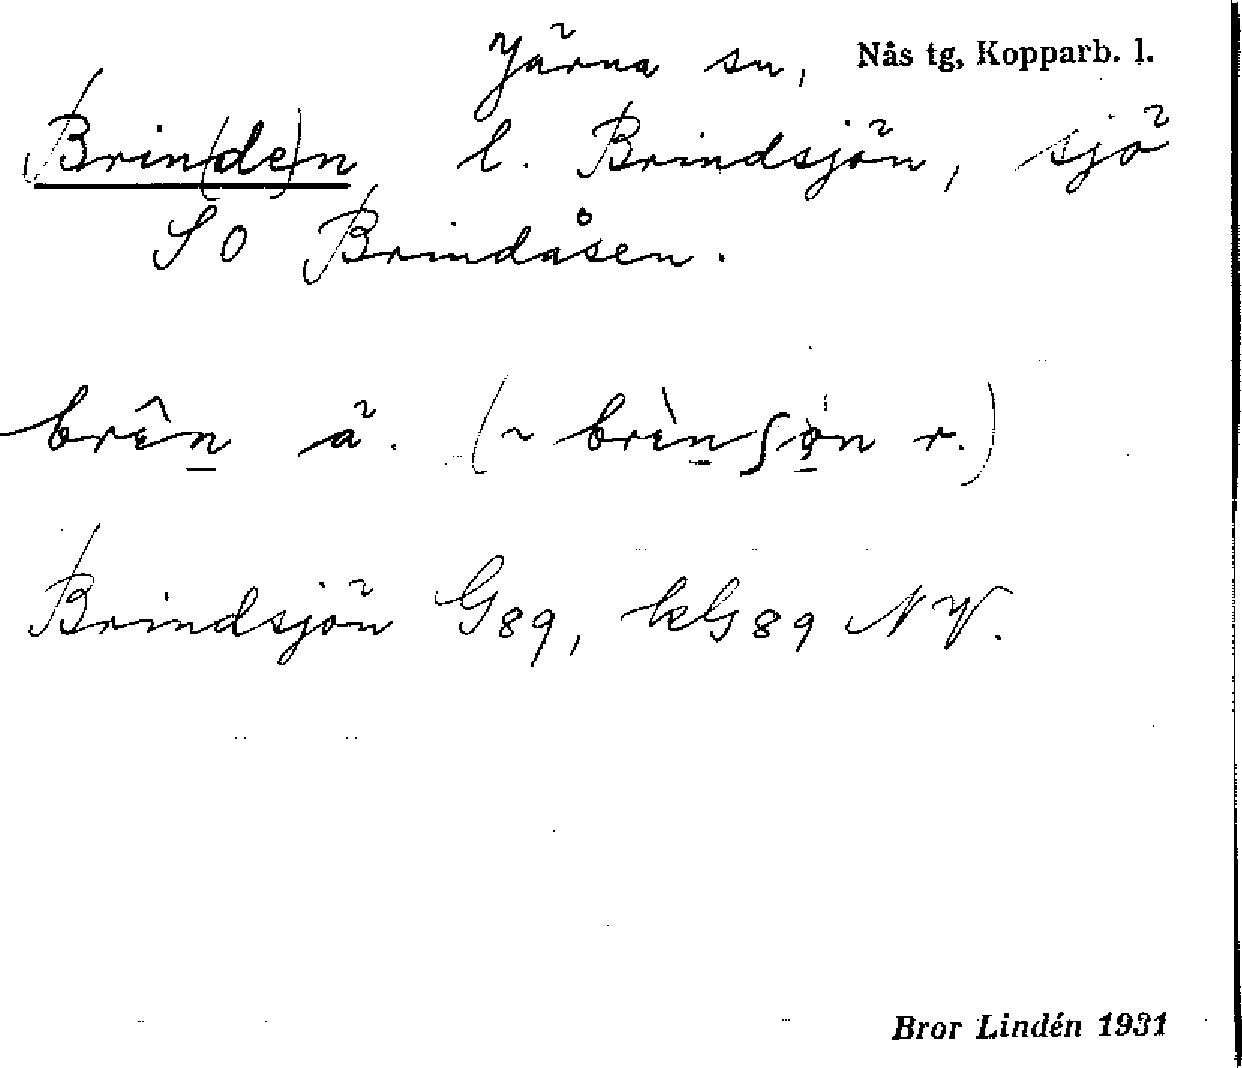 Järna sn, Nås tg, Kopparb. l.
Brin(de)n l. Brindsjön, sjö
SO Brindåsen.
brên ä. (~ brènʃøn r.)
Brindsjön G89, kG89 NV.
Bror Lindén 1931